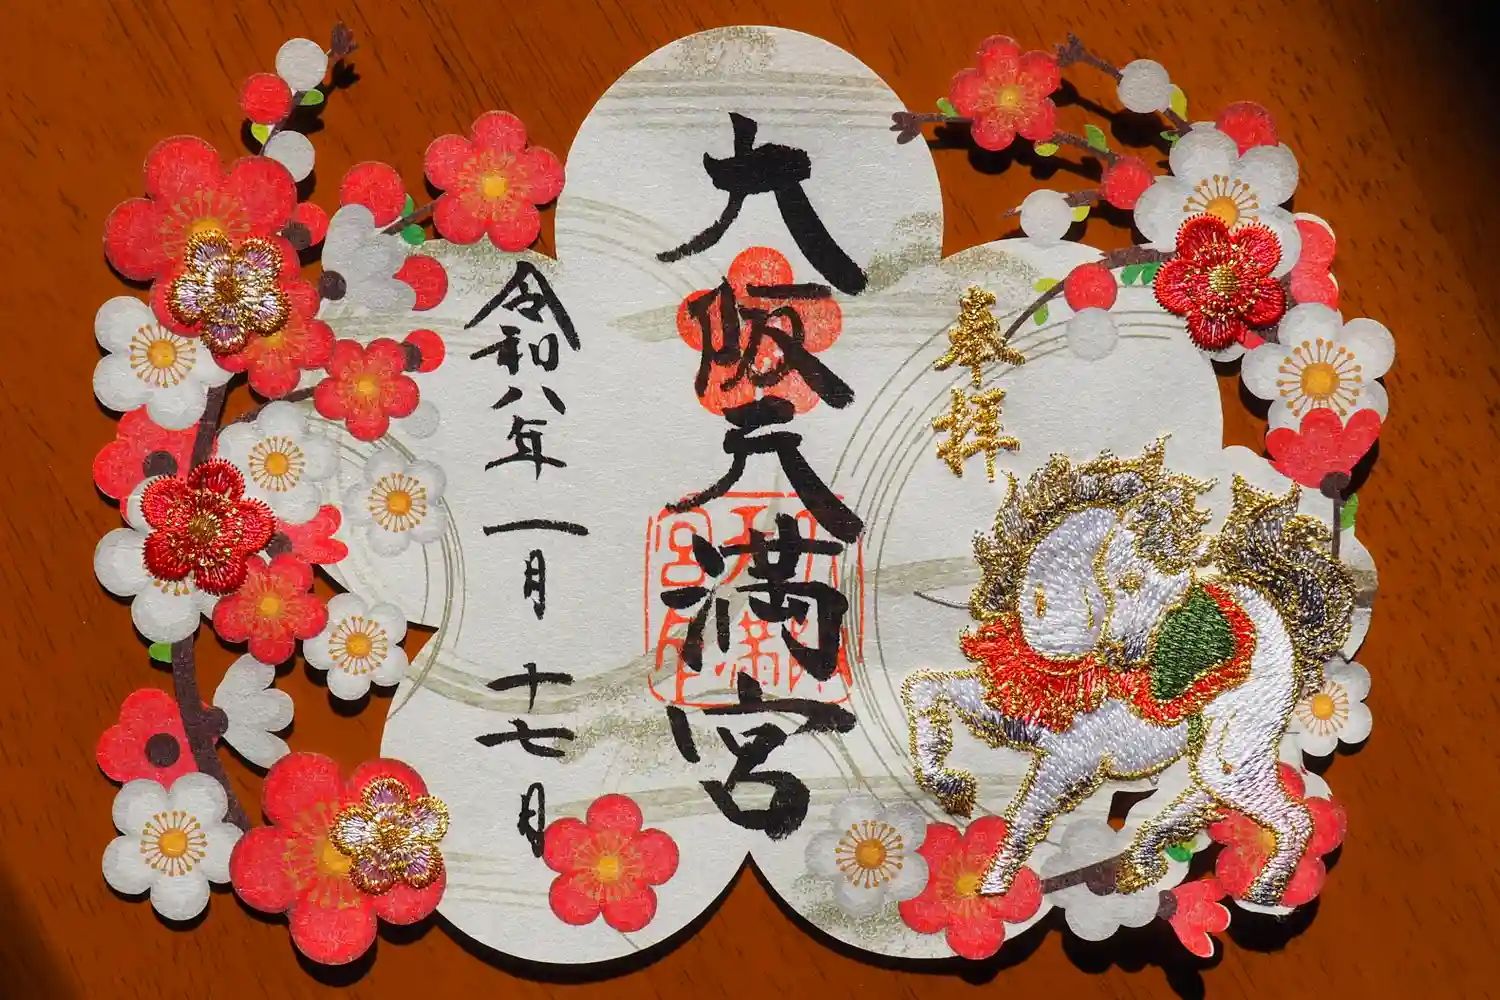 奉拝
大阪天満宮
令和八年一月十七日